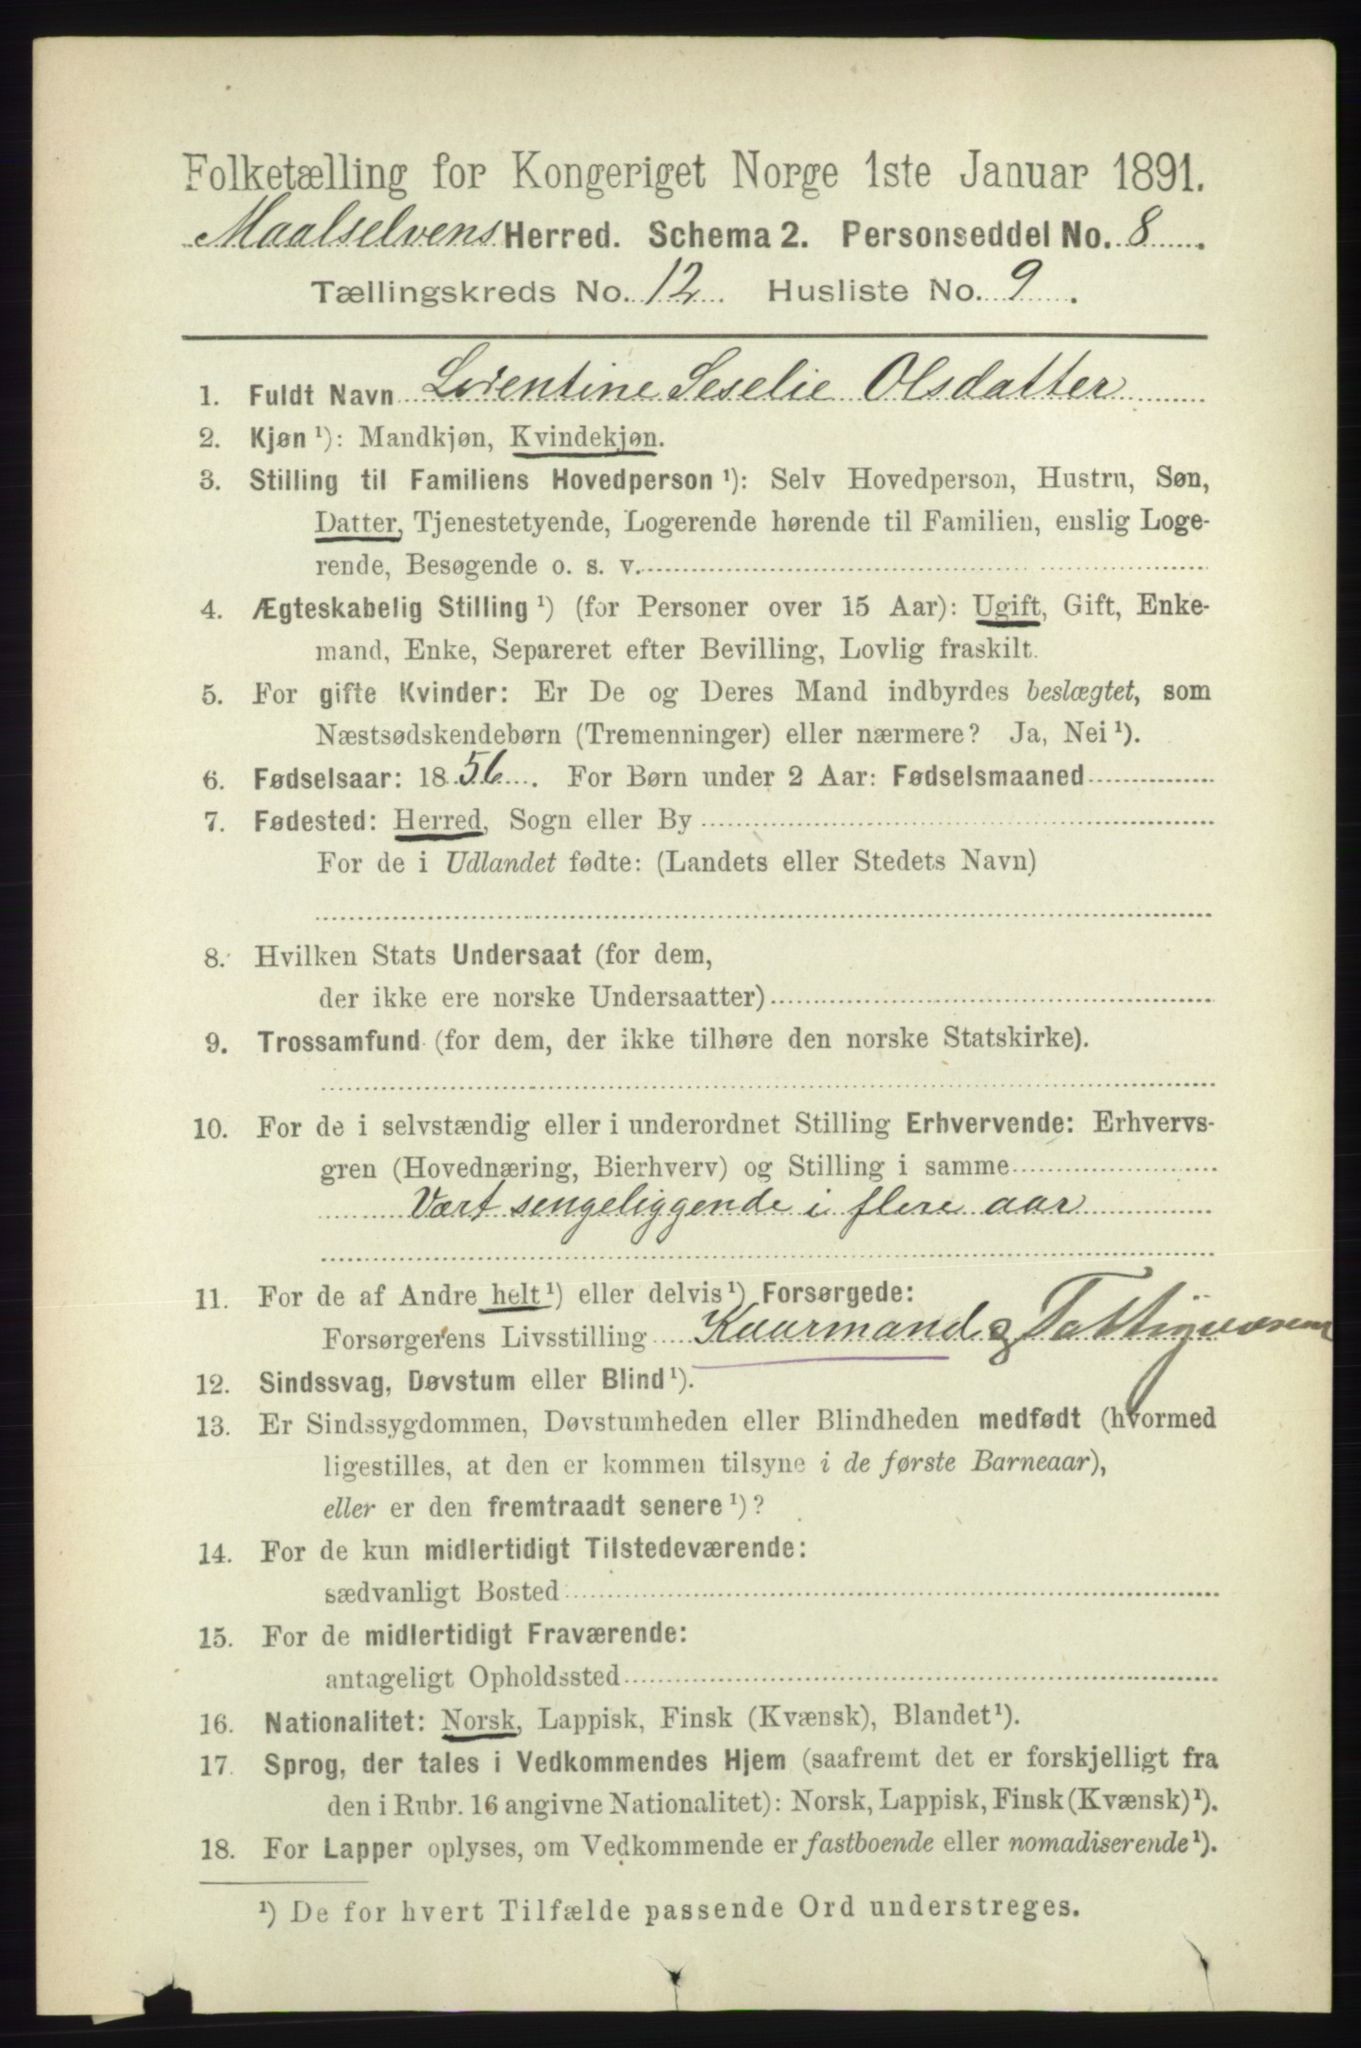 Folketælling for Kongeriget Norge 1ste Januar 1891.
Maalselvens Herred. Schema 2. Personseddel No. 8.
Tællingskreds No. 12. Husliste No. 9.
1. Fuldt Navn Lorentine Seselie Olsdatter
2. Kjøn ¹): Mandkjøn, Kvindekjøn.
3. Stilling til Familiens Hovedperson ¹): Selv Hovedperson, Hustru, Søn,
Datter, Tjenestetyende, Logerende hørende til Familien, enslig Loge-
rende, Besøgende o. s. v.
4. Ægteskabelig Stilling ¹) (for Personer over 15 Aar): Ugift, Gift, Enke-
mand, Enke, Separeret efter Bevilling, Lovlig fraskilt.
5. For gifte Kvinder: Er De og Deres Mand indbyrdes beslægtet, som
Næstsødskendebørn (Tremenninger) eller nærmere? Ja, Nei ¹).
6. Fødselsaar: 1856. For Børn under 2 Aar: Fødselsmaaned
7. Fødested: Herred, Sogn eller By
For de i Udlandet fødte: (Landets eller Stedets Navn)
8. Hvilken Stats Undersaat (for dem,
der ikke ere norske Undersaatter)
9. Trossamfund (for dem, der ikke tilhøre den norske Statskirke).
10. For de i selvstændig eller i underordnet Stilling Erhvervende: Erhvervs-
gren (Hovednæring, Bierhverv) og Stilling i samme
Vært sengeliggende i flere aar
11. For de af Andre helt ¹) eller delvis ¹) Forsørgede:
Forsørgerens Livsstilling Kaarmand og
12. Sindssvag, Døvstum eller Blind ¹).
13. Er Sindssygdommen, Døvstumheden eller Blindheden medfødt (hvormed
ligestilles, at den er kommen tilsyne i de første Barneaar),
eller er den fremtraadt senere ¹)?
14. For de kun midlertidigt Tilstedeværende:
sædvanligt Bosted
15. For de midlertidigt Fraværende:
antageligt Opholdssted
16. Nationalitet: Norsk, Lappisk, Finsk (Kvænsk), Blandet ¹).
17. Sprog, der tales i Vedkommendes Hjem (saafremt det er forskjelligt fra
den i Rubr. 16 angivne Nationalitet): Norsk, Lappisk, Finsk (Kvænsk) ¹).
18. For Lapper oplyses, om Vedkommende er fastboende eller nomadiserende ¹).
¹) De for hvert Tilfælde passende Ord understreges.